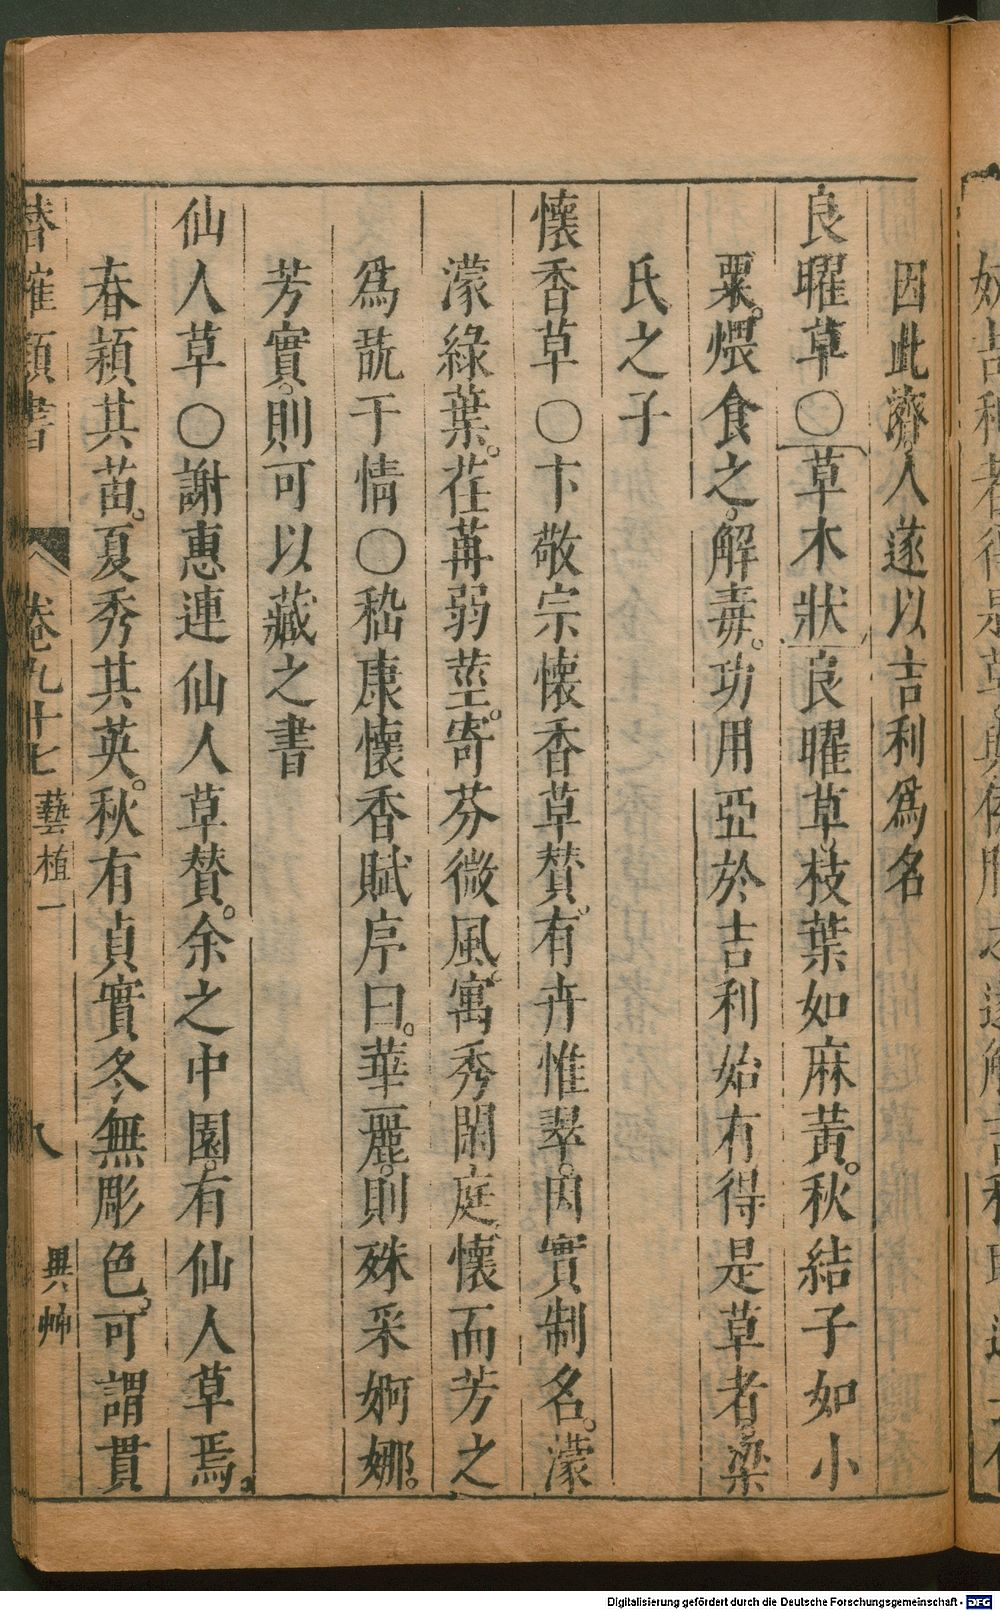 因此濟人遂以吉利爲名
良曜草〇草木狀良曜草。枝葉如麻黃。秋結子如小
粟。煨食之。解毒。功用亞於吉利始有得是草者。梁
氏之子
懷香草〇卞敬宗懷香草贊。有卉惟翠。因實制名。濛
濛綠葉。荏苒弱莖。寄芬微風。寓秀閑庭。懷而芳之
爲翫于情〇嵇康懷香賦序曰。華麗。則殊采婀娜。
芳實。則可以藏之書
仙人草〇謝惠連仙人草贊。余之中園。有仙人草焉。
春穎其苗。夏秀其英。秋有貞實冬無彫色。可謂貫
卷九十七 藝植一 八 異艸
Digitalisierung gefördert durch die Deutsche Forschungsgemeinschaft - DFG